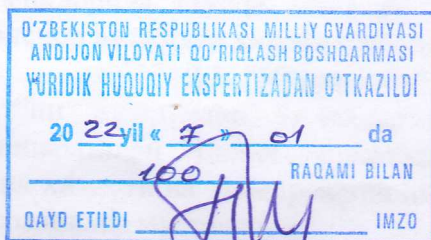 O'ZBEKISTON RESPUBLIKASI MILLIY GVARDIYASI
ANDIJON VILOYATI QO'RIQLASH BOSHQARMASI
YURIDIK HUQUQIY EKSPERTIZADAN O'TKAZILDI
20 22 yil « 7 » 01 da
100 RAQAMI BILAN
QAYD ETILDI IMZO